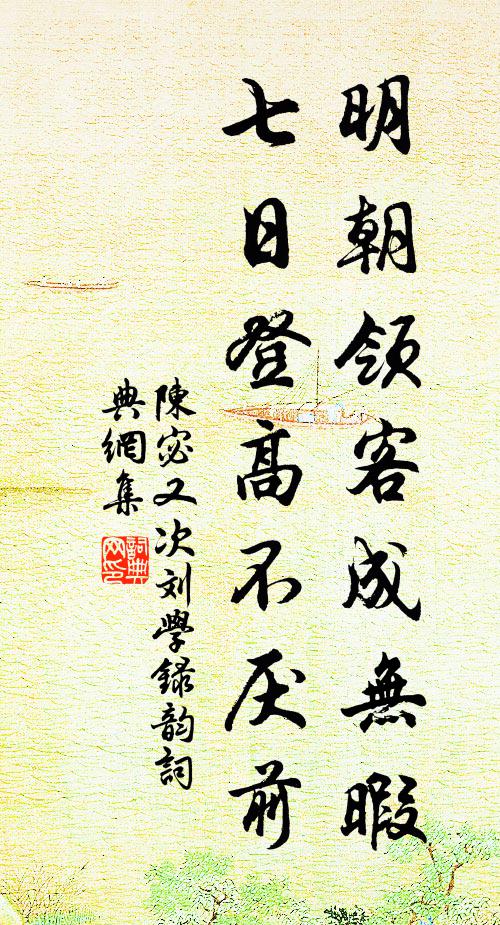 明朝領客成無暇
七日登高不厌前
陳宓又次刘學録韵詞
典網集
詞典网印